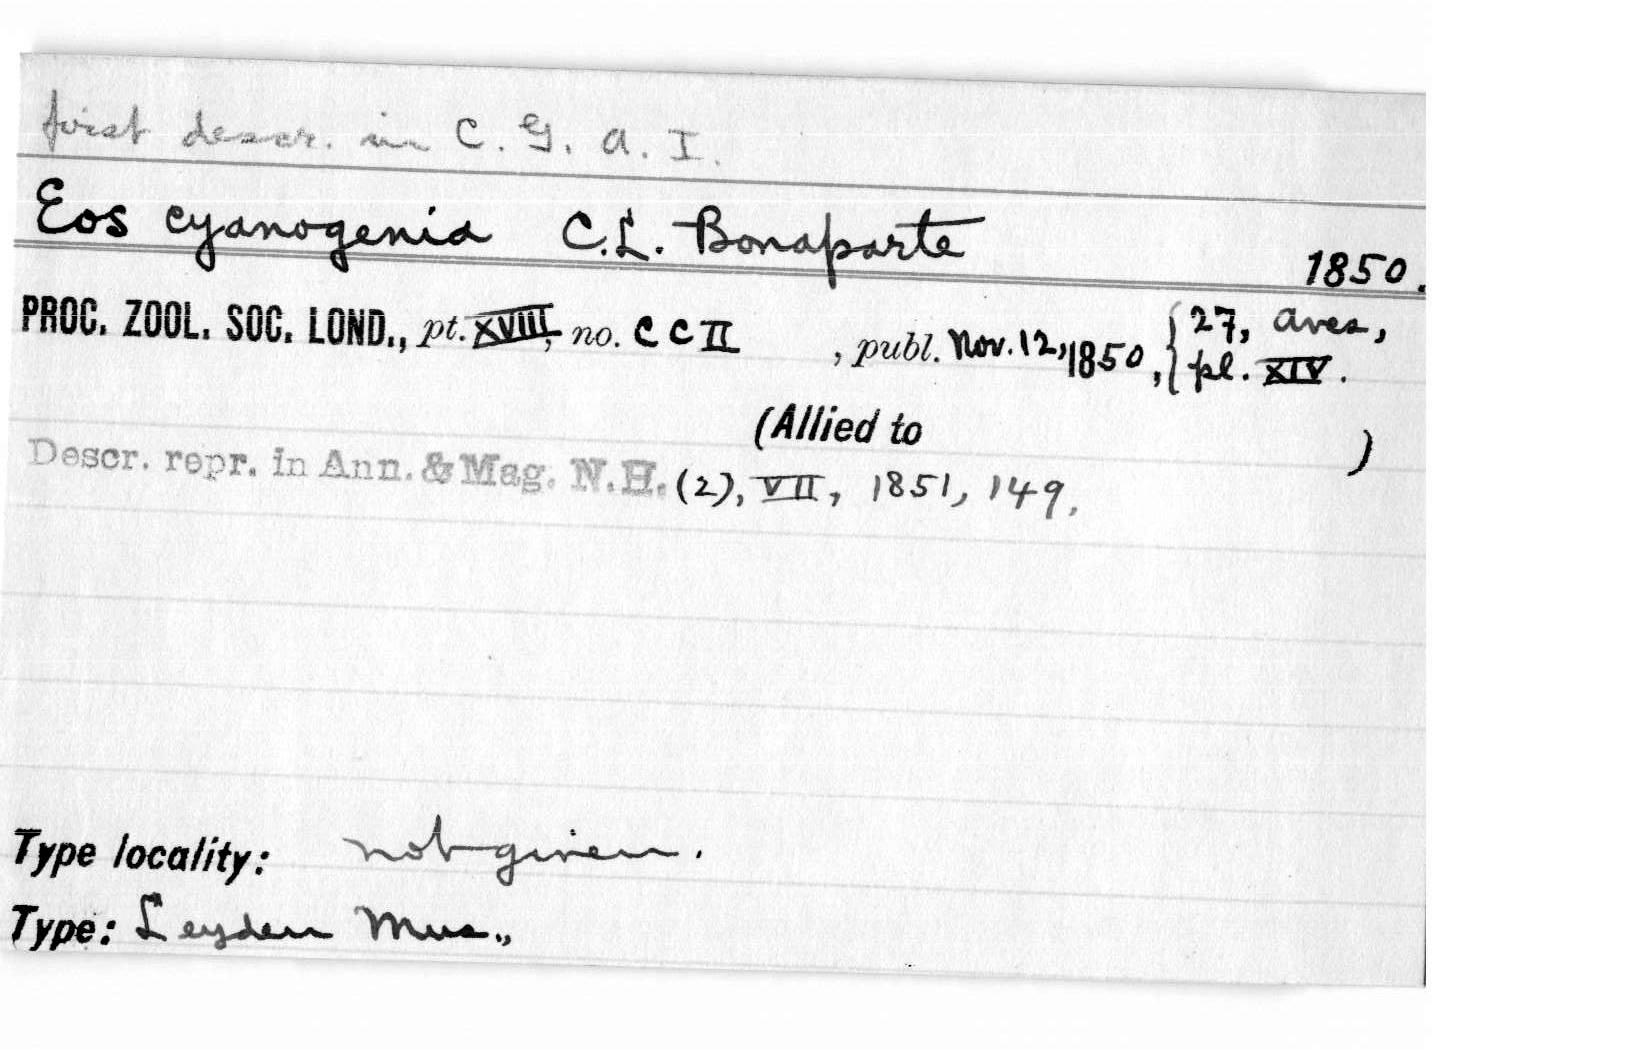 first descr. in C. G. A. I.
Eos cyanogenia C.L. Bonaparte 1850.
PROC. ZOOL. SOC. LOND., pt. XVIII, no. CCII , publ. Nov. 12, 1850, { 27, Aves,
pl. XIV.
(Allied to )
Descr. repr. in Ann. & Mag. N.H. (2), VII, 1851, 149.
Type locality: not given.
Type: Leyden Mus.,